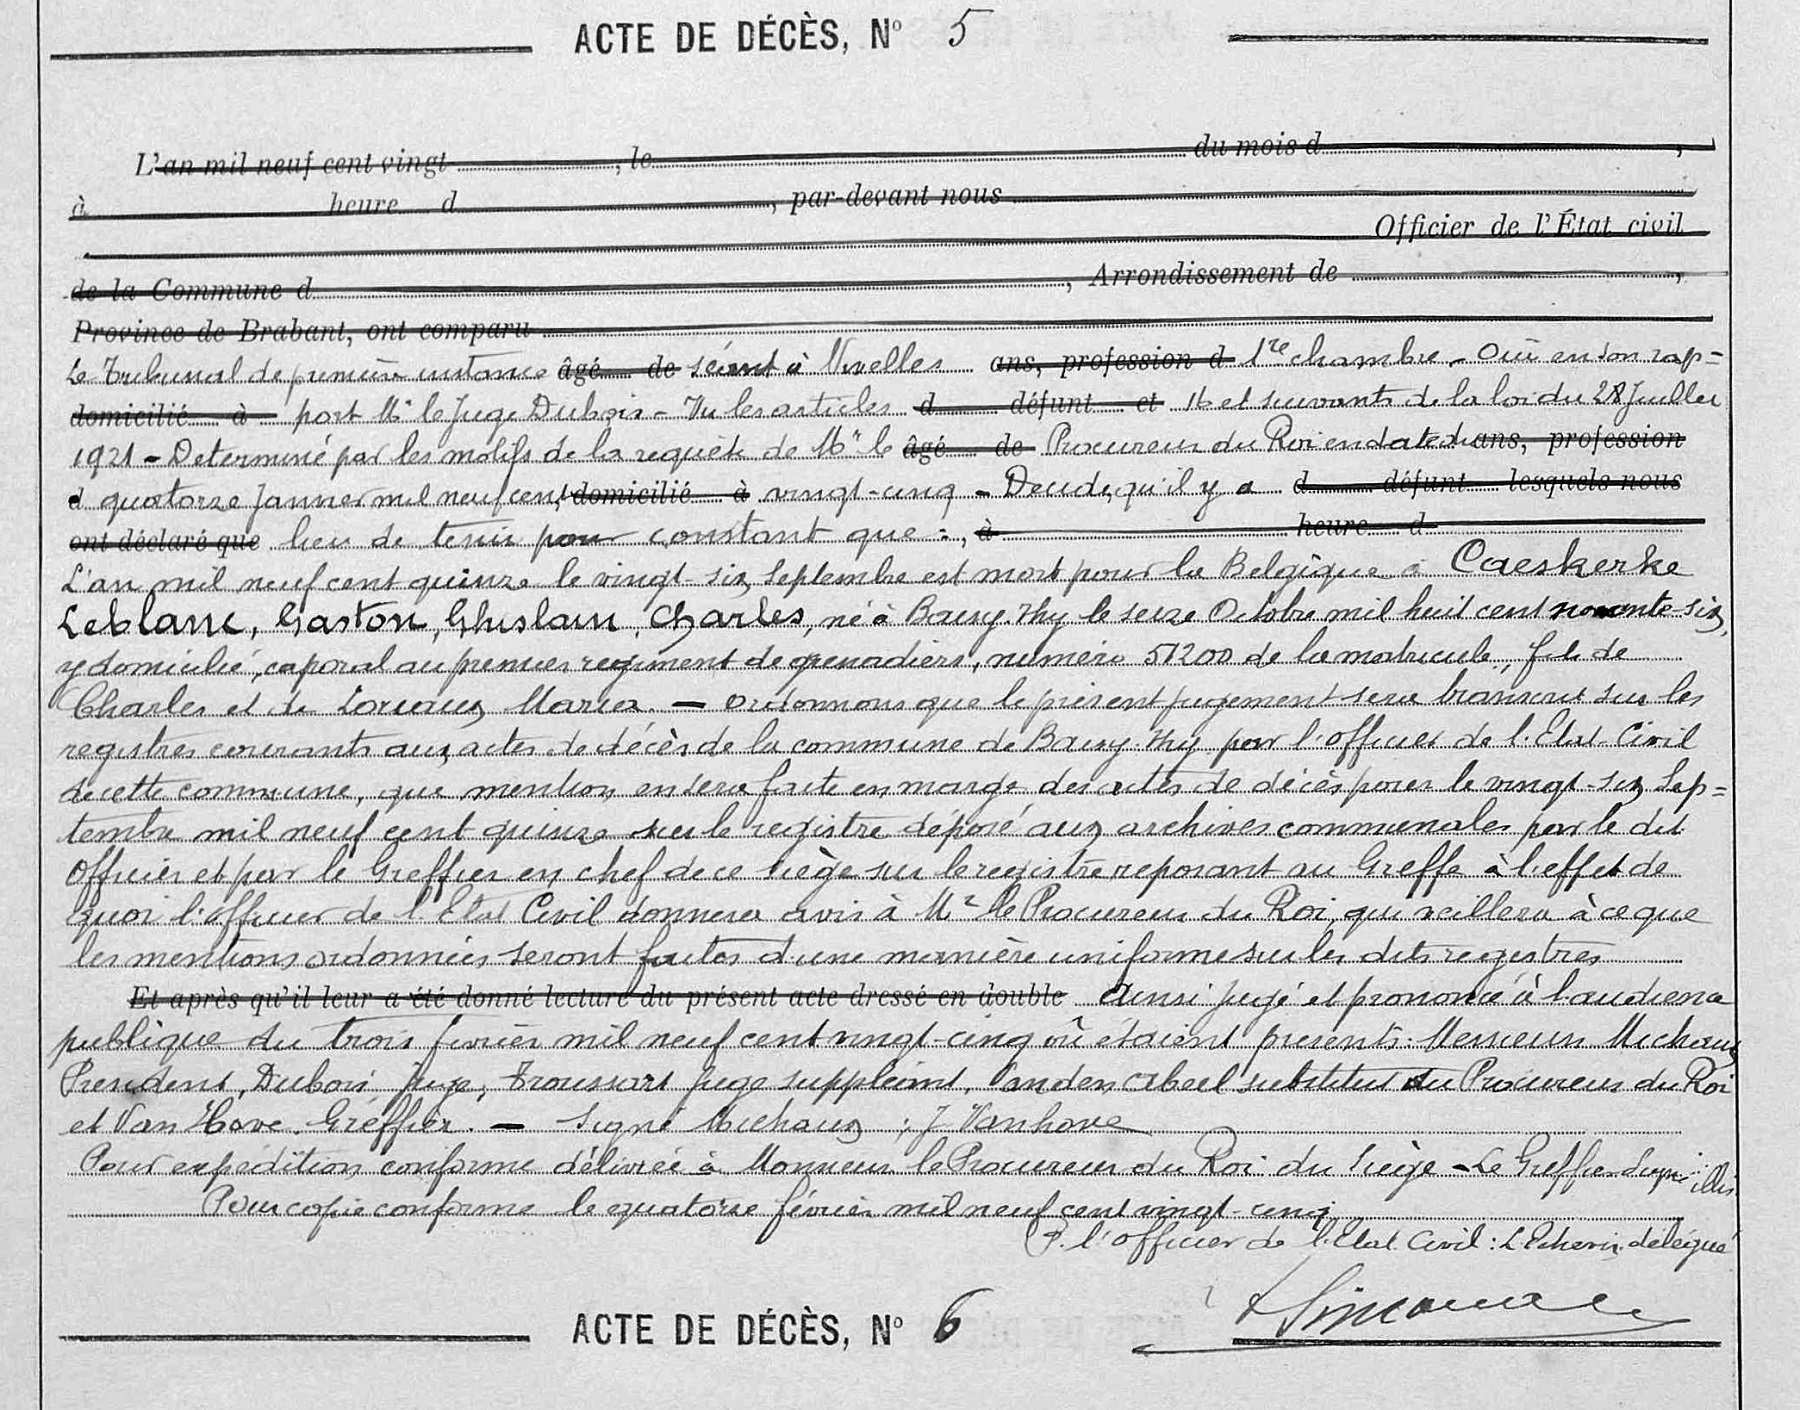 ACTE DE DÉCÈS, Nº 5
L'an mil neuf cent vingt , le du mois d ,
à heure d , par-devant nous
Officier de l'État civil
de la Commune d , Arrondissement de ,
Province de Brabant, ont comparu
Le Tribunal de première instance âgé de séant à Nivelles ans, profession d 1re chambre - Ouï en son rap=
domicilié à port Mr le Juge Dubois - Vu les articles d défunt et 16 et suivants de la loi du 28 Juillet
1921 - Determiné par les motifs de la requête de Mr le âgé de Procureur du Roi en date du ans, profession
d quatorze Janvier mil neuf cent domicilié à vingt-cinq - Decide qu'il y a d défunt lesquels nous
ont déclaré que lieu de tenir pour constant que : , à heure d
L'an mil neuf cent quinze le vingt-six Septembre est mort pour la Belgique à Caeskerke
Leblanc, Gaston, Ghislain, Charles, né à Baisy-Thy le seize Octobre mil huit cent nonante-six,
y domicilié, caporal au premier régiment de grenadiers, numéro 51200 de la matricule, fils de
Charles et de Marie. — ordonnons que le présent jugement sera transcrit sur les
registres courants aux actes de décès de la commune de Baisy-Thy par l'officier de l'Etat-Civil
de cette commune, que mention en sera faite en marge des actes de décès pour le vingt-six Sep=
tembre mil neuf cent quinze sur le registre déposé aux archives communales par le dit
Officier et par le Greffier en chef de ce siège sur le registre reposant au Greffe à l'effet de
quoi l'officier de l'Etat Civil donnera avis à Mr le Procureur du Roi, qui veillera à ce que
les mentions ordonnées seront faites d'une manière uniforme sur les dits registres
Et après qu'il leur a été donné lecture du présent acte dressé en double Ainsi jugé et prononcé à l'audience
publique du trois février mil neuf cent vingt-cinq où étaient présents: Messieurs Michaux
President, Dubois Juge, Troussart Juge suppléant, Vanden Abeel substitut du Procureur du Roi
et Van Hove. Greffier. — Signé Michaux ; J Vanhove
Pour expédition conforme délivrée à Monsieur le Procureur du Roi du Siège - Le Greffier Signé: illis.
Pour copie conforme le quatorze février mil neuf cent vingt-cinq
P. l'officier de l'Etat Civil: L'Echevin délégué
ACTE DE DÉCÈS, Nº 6